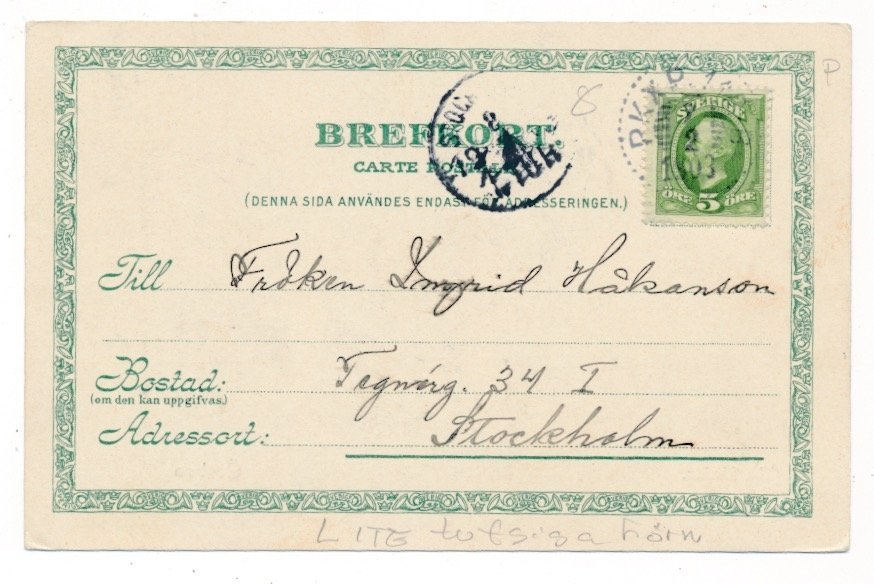 P
8
BREFKORT.
CARTE POSTALE
(DENNA SIDA ANVÄNDES ENDAST FÖR ADRESSERINGEN.)
SVERIGE
1903
ÖRE 5 ÖRE
Till Fröken Ingrid Håkanson
Bostad: Tegnérg. 34 I
(om den kan uppgifvas.)
Adressort: Stockholm
LITE tufsiga hörn